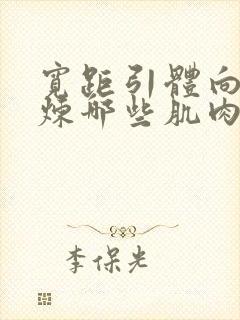 寬距引體向
煉哪些肌肉
李保光